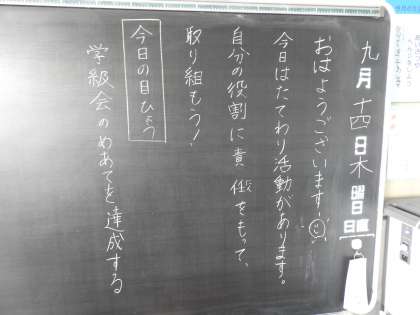 九月十四日木曜日
日直
おはようございます!
今日はたてわり活動があります。
自分の役割に責任をもって、
取り組もう!
今日の目ひょう
学級会のめあてを達成する